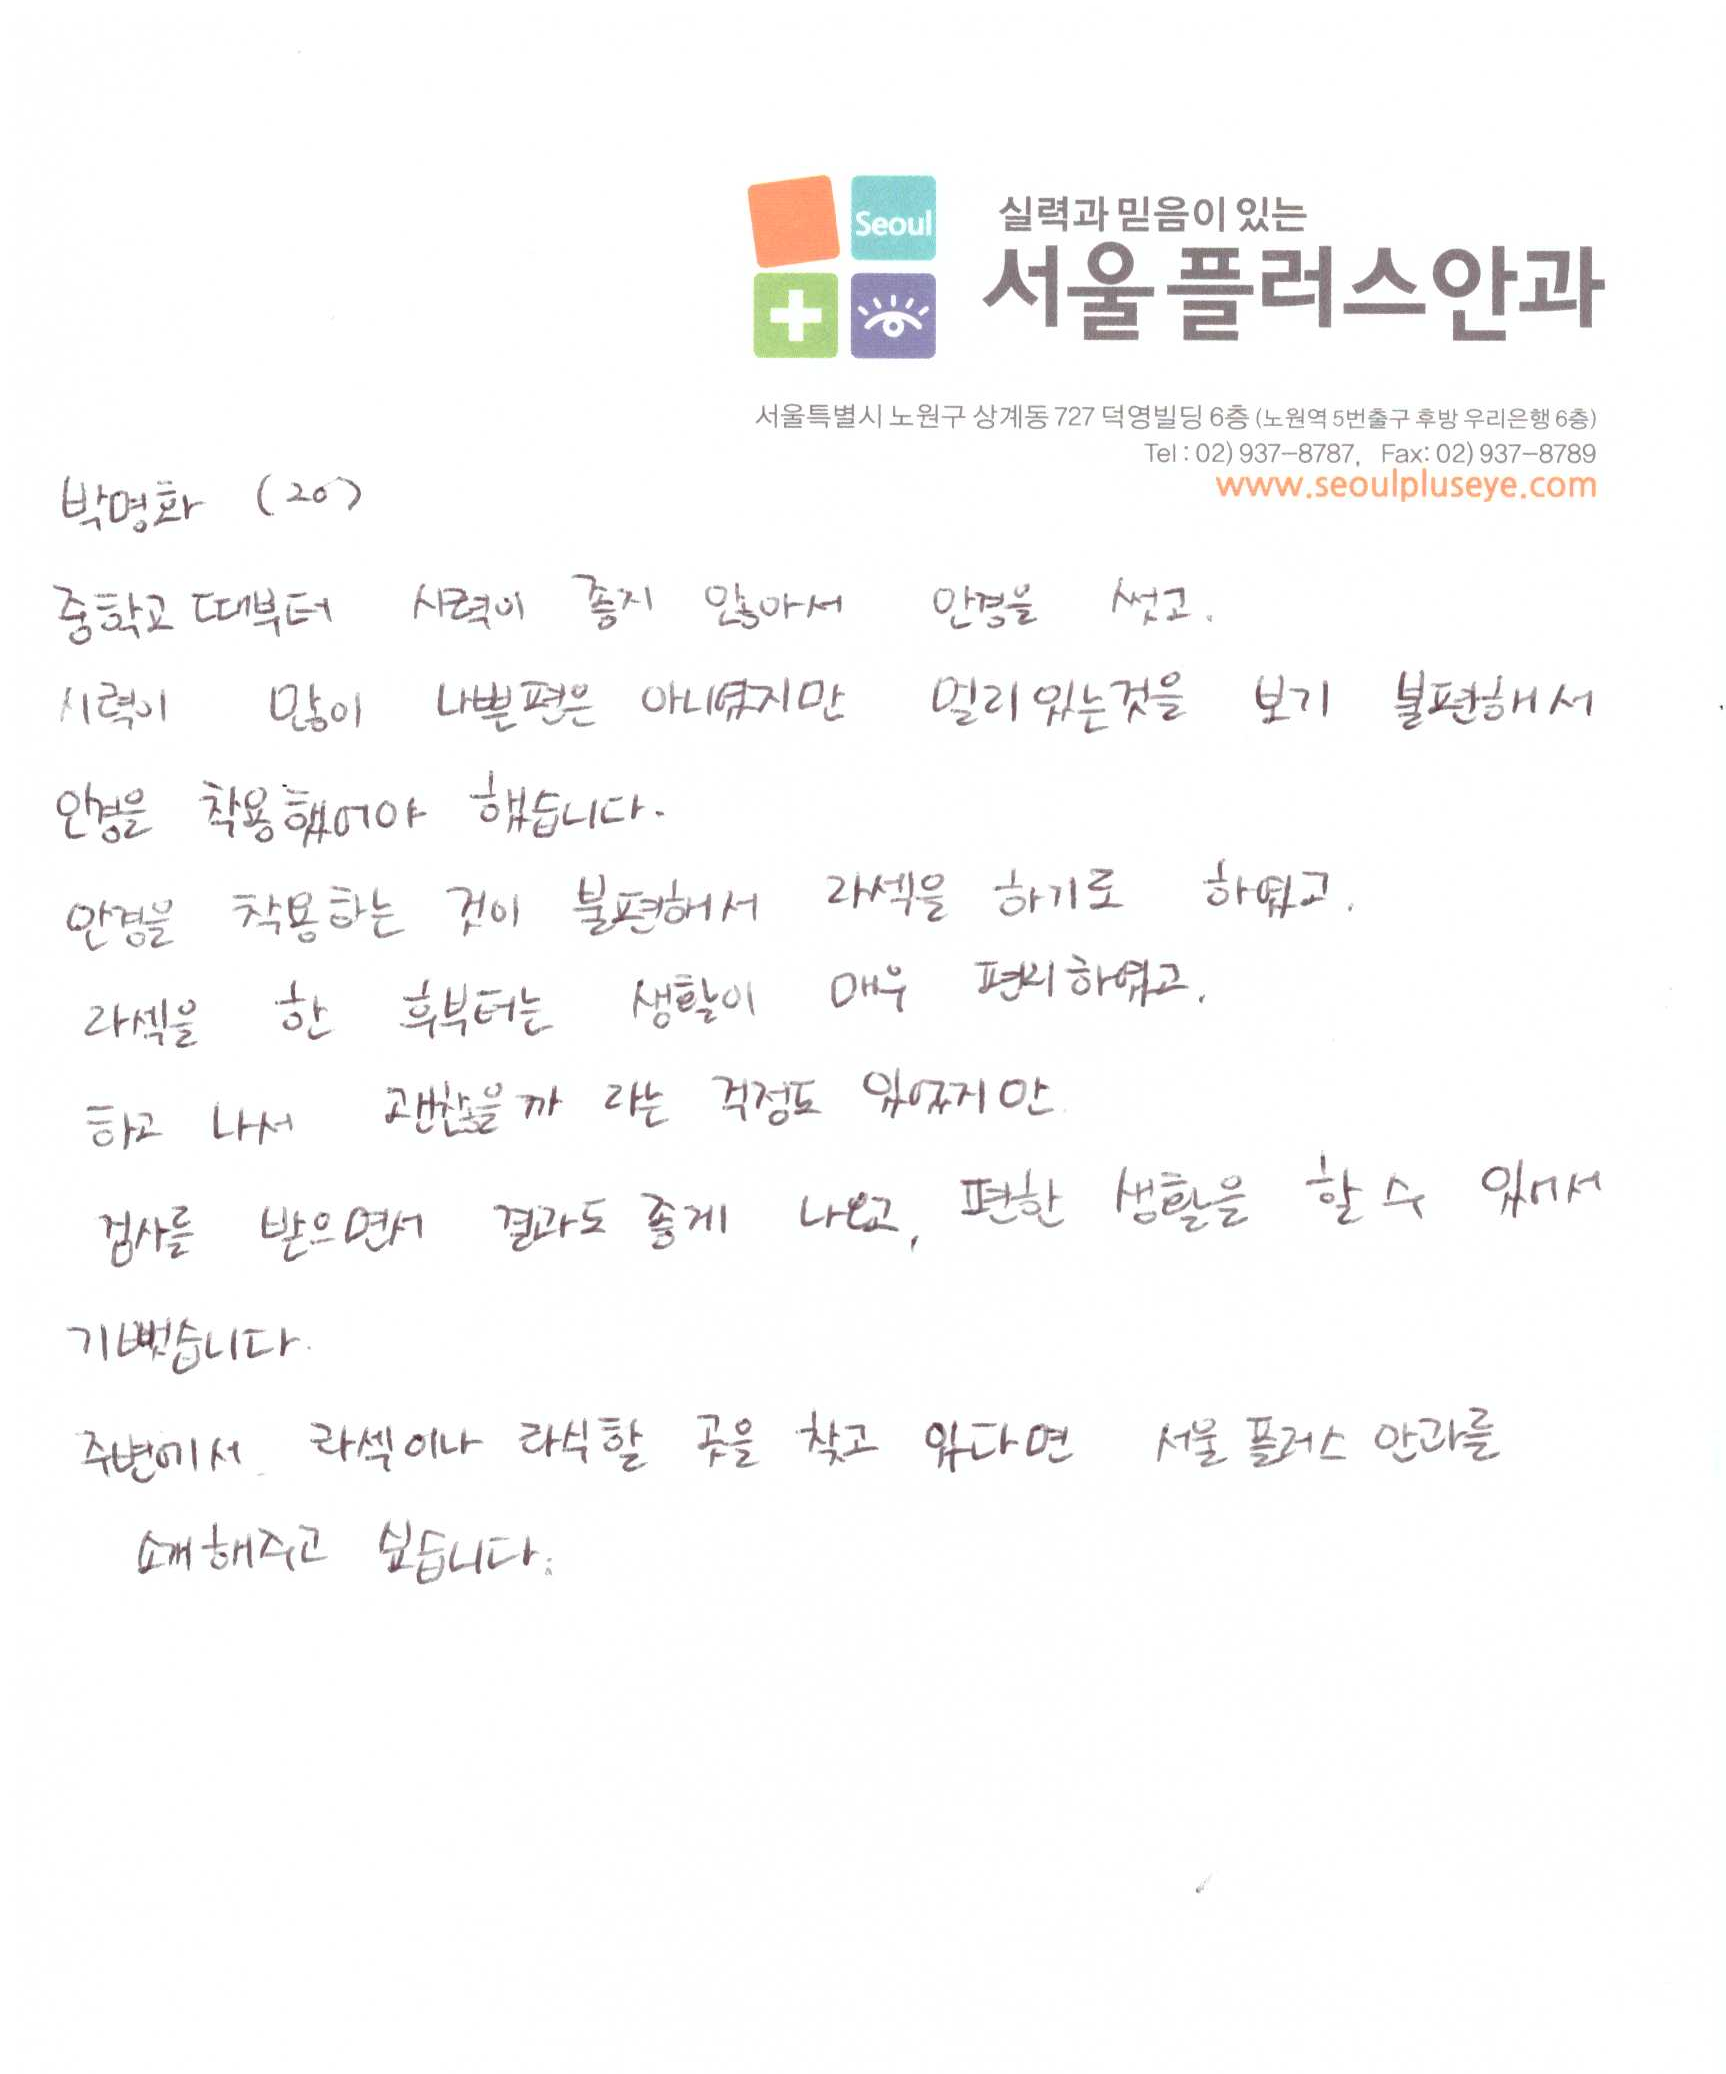 Seoul
실력과 믿음이 있는
서울플러스안과
서울특별시 노원구 상계동 727 덕영빌딩 6층 (노원역 5번출구 후방 우리은행 6층)
Tel : 02) 937-8787, Fax: 02) 937-8789
www.seoulpluseye.com
박명화 (20)
중학교 때부터 시력이 좋지 않아서 안경을 썼고.
시력이 많이 나쁜편은 아니였지만 멀리있는것을 보기 불편해서
안경을 착용했어야 했습니다.
안경을 착용하는 것이 불편해서 라섹을 하기로 하였고.
라섹을 한 후부터는 생활이 매우 편리하였고.
하고 나서 괜찮을까 라는 걱정도 있었지만
검사를 받으면서 결과도 좋게 나오고, 편한 생활을 할 수 있어서
기뻤습니다.
주변에서 라섹이나 라식할 곳을 찾고 있다면 서울 플러스 안과를
소개해주고 싶습니다.